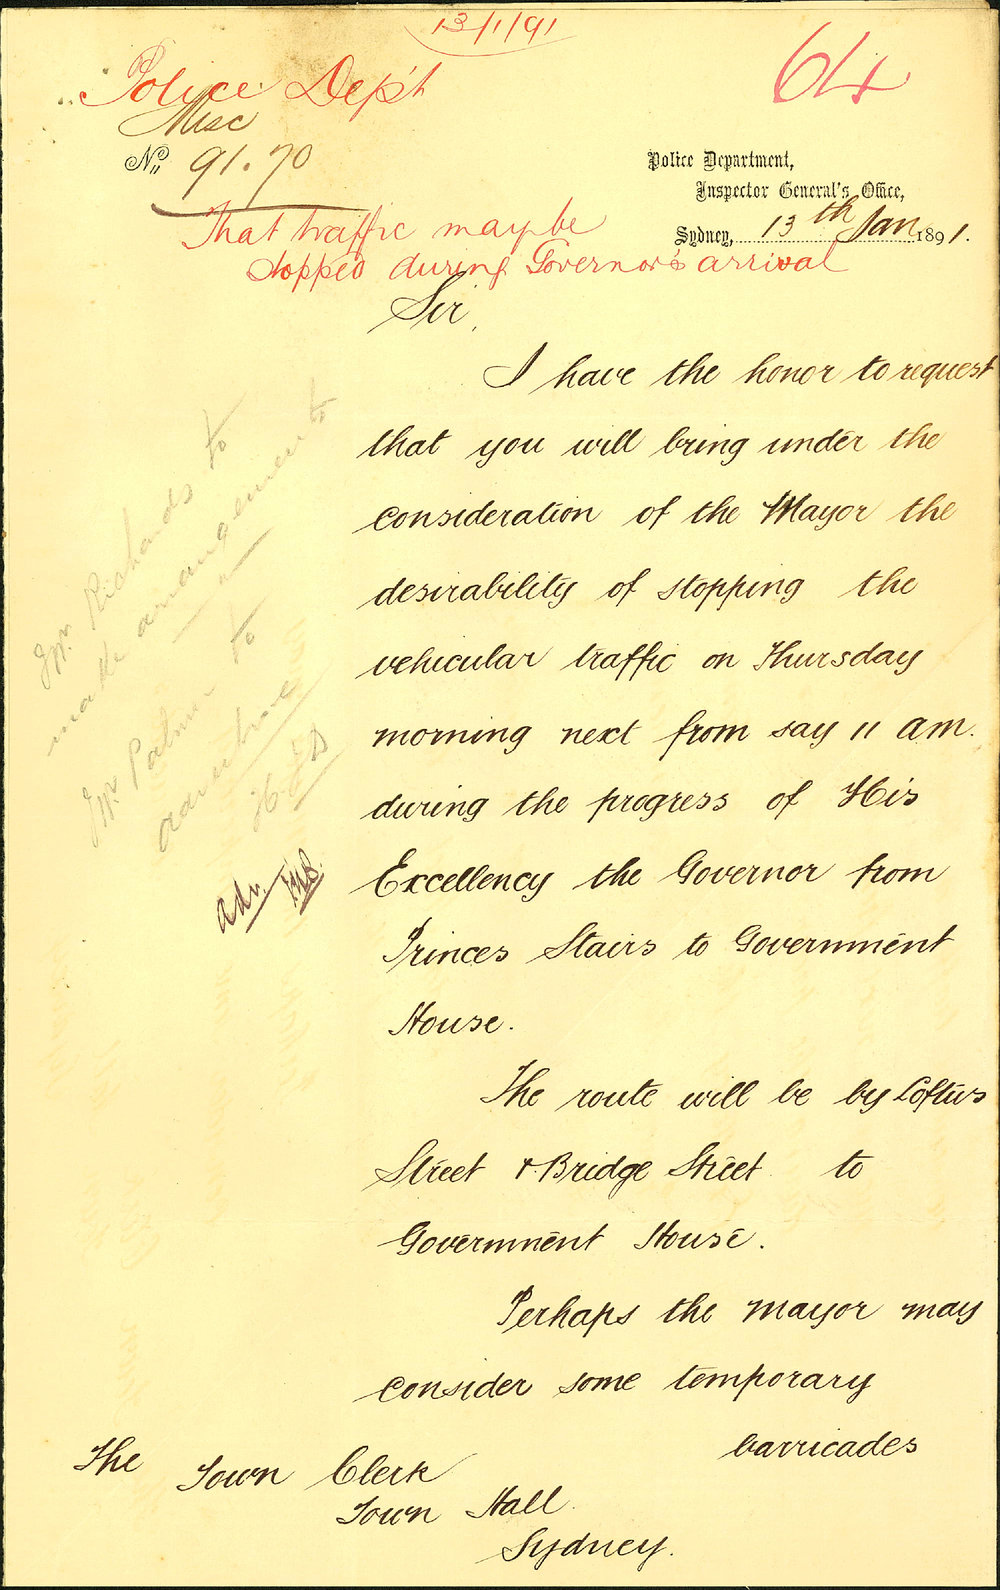 13/1/91
64
Police Dep't
Misc
No. 91.70
Police Department,
Inspector General's Office,
Sydney, 13th Jan 1891.
That traffic may be
stopped during Governor's arrival
Sir,
I have the honor to request
that you will bring under the
consideration of the Mayor the
desirability of stopping the
vehicular traffic on Thursday
morning next from say 11 am.
during the progress of His
Excellency the Governor from
Princes Stairs to Government
House.
The route will be by Loftus
Street & Bridge Street to
Government House.
Perhaps the Mayor may
consider some temporary
barricades
The Town Clerk
Town Hall
Sydney.
Richards to
make arrangements
Palmer to
advertise
adv.